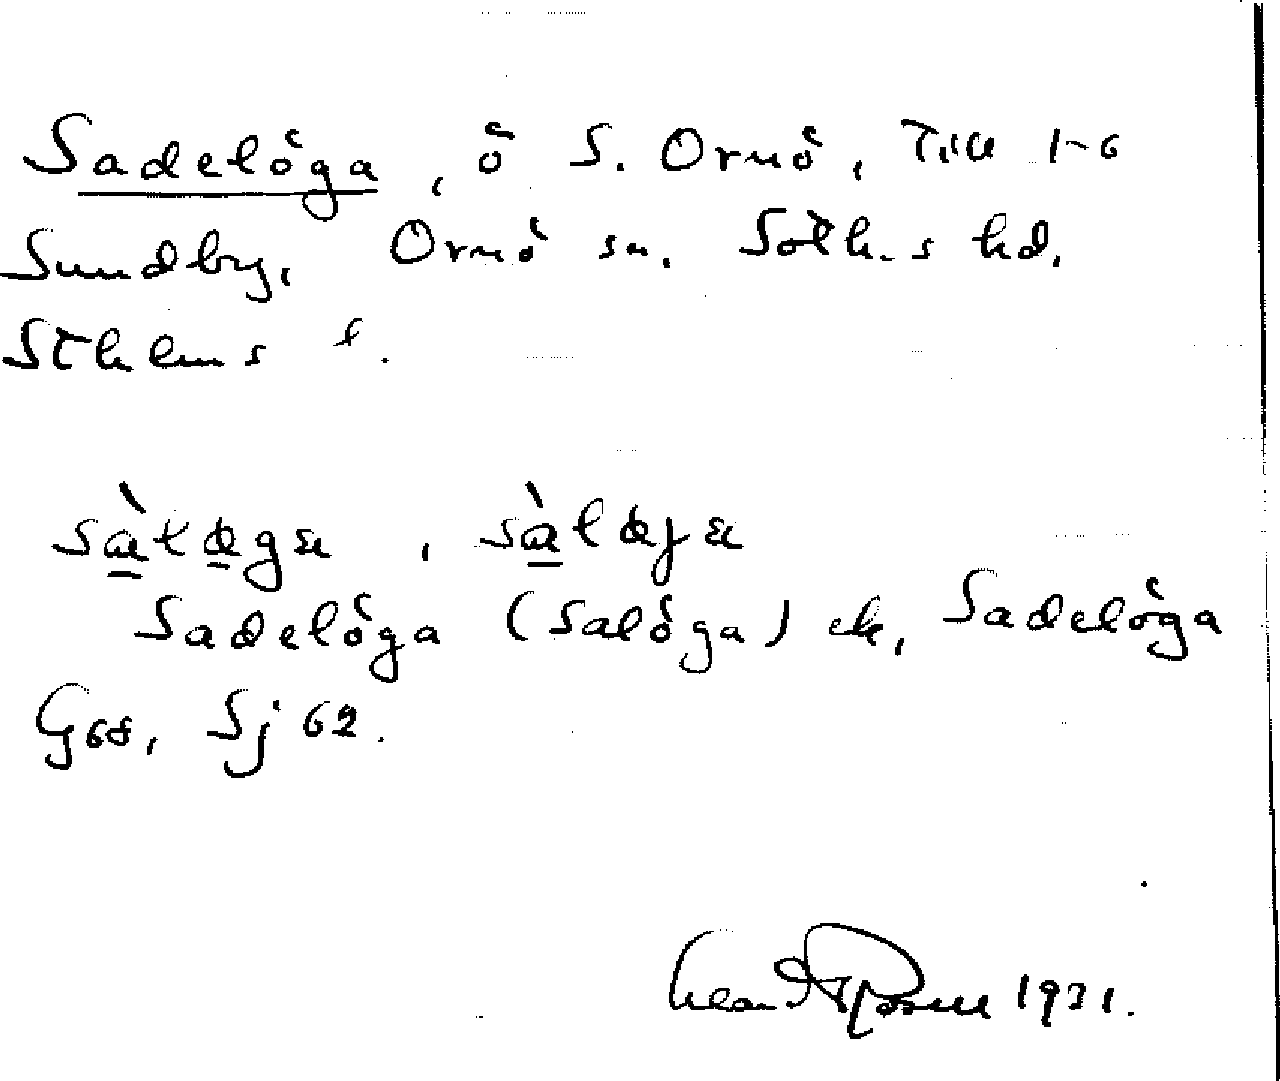 Sadelöga, ö S. Ornö, Till 1-6
Sundby, Ornö sn. Sotk.s hd.
Sthlms l.
Sadelöga (Salöga) ek, Sadelöga
G68, Sj 62.
1931.